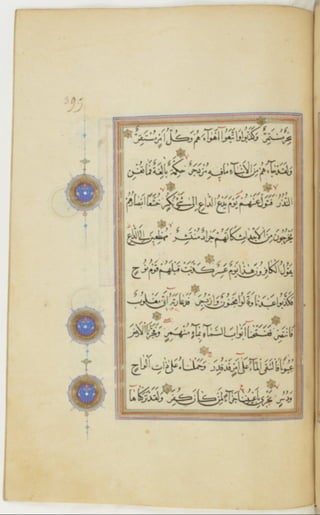 سِحْرٌ مُسْتَمِرٌّ وَكَذَّبُوا وَاتَّبَعُوا أَهْوَاءَهُمْ وَكُلُّ أَمْرٍ مُسْتَقِرٌّ
وَلَقَدْ جَاءَهُمْ مِنَ الْأَنْبَاءِ مَا فِيهِ مُزْدَجَرٌ حِكْمَةٌ بَالِغَةٌ فَمَا تُغْنِ
النُّذُرُ فَتَوَلَّ عَنْهُمْ يَوْمَ يَدْعُ الدَّاعِ إِلَى شَيْءٍ نُكُرٍ خُشَّعًا أَبْصَارُهُمْ
يَخْرُجُونَ مِنَ الْأَجْدَاثِ كَأَنَّهُمْ جَرَادٌ مُنْتَشِرٌ مُهْطِعِينَ إِلَى الدَّاعِ
يَقُولُ الْكَافِرُونَ هَذَا يَوْمٌ عَسِرٌ كَذَّبَتْ قَبْلَهُمْ قَوْمُ نُوحٍ
فَكَذَّبُوا عَبْدَنَا وَقَالُوا مَجْنُونٌ وَازْدُجِرَ فَدَعَا رَبَّهُ أَنِّي مَغْلُوبٌ
فَانْتَصِرْ فَفَتَحْنَا أَبْوَابَ السَّمَاءِ بِمَاءٍ مُنْهَمِرٍ وَفَجَّرْنَا الْأَرْضَ
عُيُونًا فَالْتَقَى الْمَاءُ عَلَى أَمْرٍ قَدْ قُدِرَ وَحَمَلْنَاهُ عَلَى ذَاتِ أَلْوَاحٍ
وَدُسُرٍ تَجْرِي بِأَعْيُنِنَا جَزَاءً لِمَنْ كَانَ كُفِرَ وَلَقَدْ تَرَكْنَاهَا